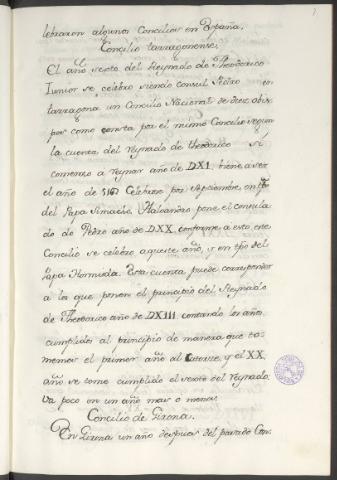 lebraron algunos Concilios en España.
Concilio tarraconense.
El año sexto del Reynado de Theodorico
Iunior se celebro siendo consul Pedro en
tarragona un Concilio Nacional de diez obis-
pos como consta por el mismo Concilio segun
la cuenta del reynado de theodorico si
comenzo a reynar año de DXI. viene a ser
el año de 516 Celebrose por septiembre en tpo
del Papa Simacho. Haloandro pone el consula
do de Pedro año de DXX. conforme a esto, este
Concilio se celebro aqueste año, y en tpo del
Papa Hormisda. Esta cuenta puede corresponder
a los que ponen el principio del Reynado
de Theodorico año de DXIII contando los años
cumplidos al principio de manera que to-
memos el primer año al y el XX.
año se tome cumplido el sexto del reynado.
Va poco en un año mas o menos
Concilio de Girona.
En Girona un año despues del pasado Con-